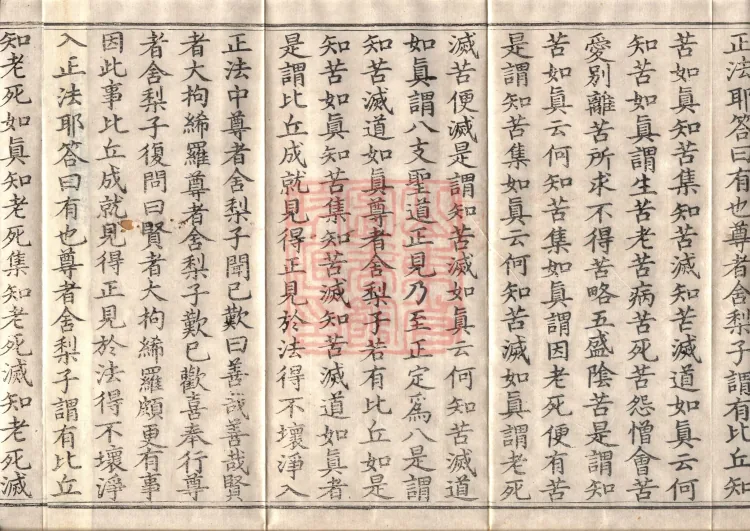 正法耶答曰有也尊者舍梨子謂有比丘知
苦如眞知苦集知苦滅知苦滅道如眞云何
知苦如眞謂生苦老苦病苦死苦怨憎會苦
愛別離苦所求不得苦略五盛陰苦是謂知
苦如眞云何知苦集如眞謂因老死便有苦
是謂知苦集如眞云何知苦滅如眞謂老死
滅苦便滅是謂知苦滅如眞云何知苦滅道
如眞謂八支聖道正見乃至正定爲八是謂
知苦滅道如眞尊者舍梨子若有比丘如是
知苦如眞知苦集知苦滅知苦滅道如眞者
是謂比丘成就見得正見於法得不壞淨入
正法中尊者舍梨子聞已歎曰善哉善哉賢
者大拘絺羅尊者舍梨子歎已歡喜奉行尊
者舍梨子復問曰賢者大拘絺羅頗更有事
因此事比丘成就見得正見於法得不壞淨
入正法耶答曰有也尊者舍梨子謂有比丘
知老死如眞知老死集知老死滅知老死滅